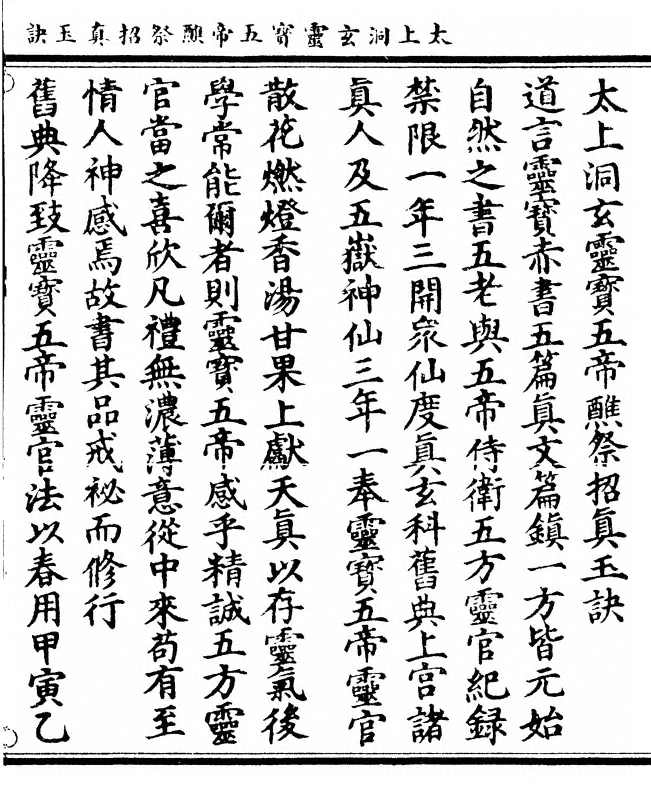 太上洞玄靈寳五帝醮祭招真玉訣
太上洞玄靈寳五帝醮祭招眞玉訣
道言靈寳赤書五篇眞文篇鎮一方皆元始
自然之書五老與五帝侍衛五方靈官紀録
禁限一年三開衆仙度眞玄科舊典上宫諸
眞人及五嶽神仙三年一奉靈寳五帝靈官
散花燃燈香湯甘果上獻天眞以存靈氣後
學常能爾者則靈寳五帝感乎精誠五方靈
官當之喜欣凡禮無濃薄意從中來苟有至
情人神感焉故書其品戒祕而修行
舊典降致靈寳五帝靈官法以春用甲寅乙